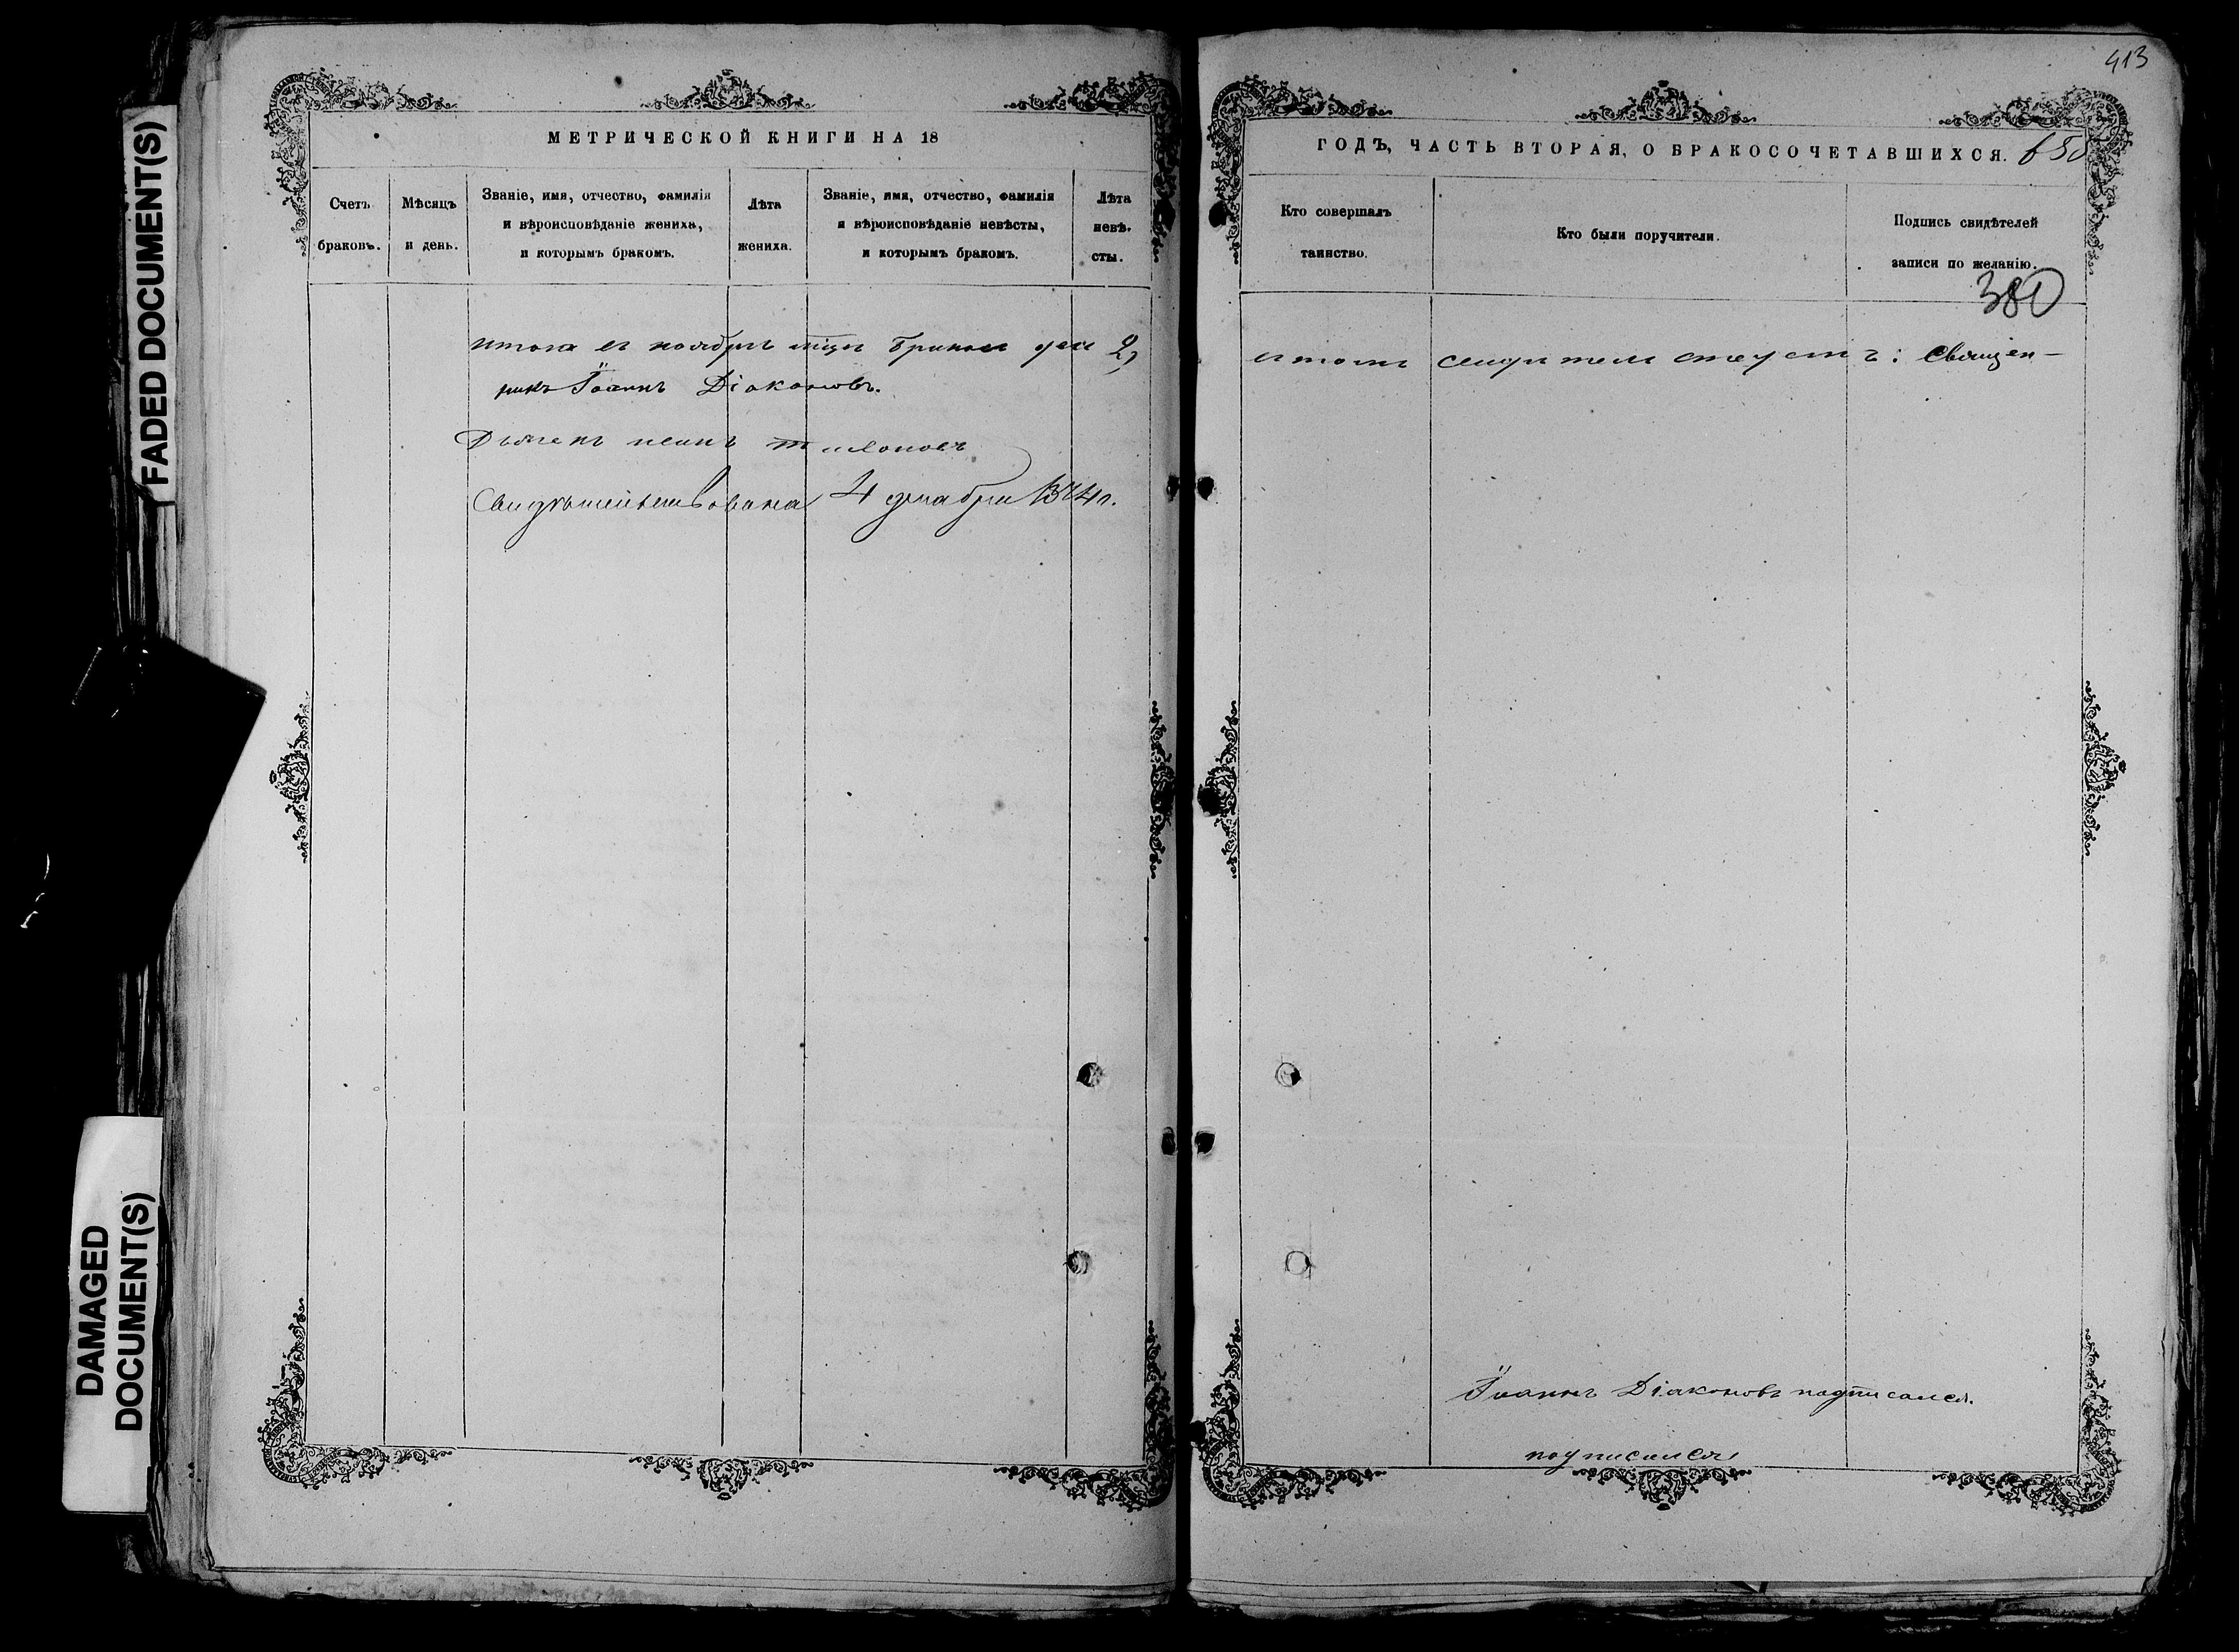 FADED DOCUMENT(S)
DAMAGED DOCUMENT(S)
МЕТРИЧЕСКОЙ КНИГИ НА 18
Счетъ браковъ.
Мѣсяцъ и день.
Званіе, имя, отчество, фамилія и вѣроисповѣданіе жениха, и которымъ бракомъ.
Лѣта жениха.
Званіе, имя, отчество, фамилія и вѣроисповѣданіе невѣсты, и которымъ бракомъ.
Лѣта невѣсты.
итого въ ноябрѣ мцѣ браковъ два 2,
никъ Іоаннъ Діаконовъ.
Дьячекъ
Свидѣтельствована 4 декабря 1874 г.
413
ГОДЪ, ЧАСТЬ ВТОРАЯ, О БРАКОСОЧЕТАВШИХСЯ.
Кто совершалъ таинство.
Кто были поручители.
Подпись свидѣтелей записи по желанію.
380
въ томъ свидѣтельствуетъ: Священ-
Іоаннъ Діаконовъ подписался.
подписался